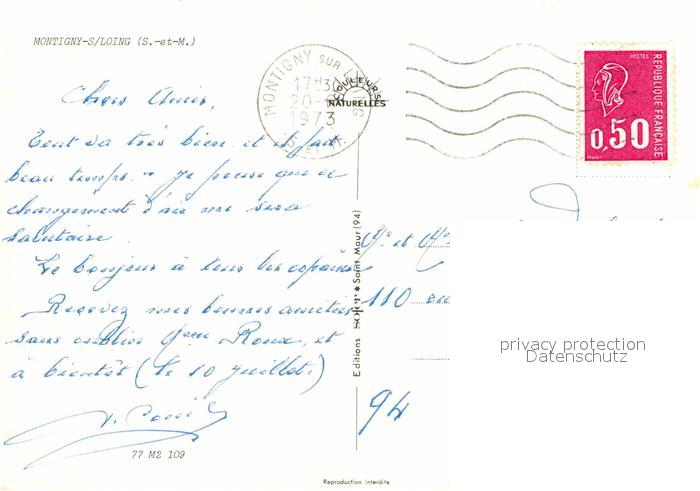 MONTIGNY-S/LOING (S.-et-M.)
MONTIGNY SUR LOING
17H30
20-
1973
S. ET M.
COULEURS
NATURELLES
POSTES
REPUBLIQUE FRANÇAISE
0,50
Chers Amis,
Tout va très bien et il fait
beau temps. - Je pense que ce
changement d'air me sera
salutaire.
Le bonjour à tous les copains
Recevez mes bonnes amitiés
sans oublier Mme Roux, et
à bientôt (le 10 juillet.)
77 M2 109
Editions SOFER * Saint Maur (94)
Mr et Me
110
94
privacy protection
Datenschutz
Reproduction interdite